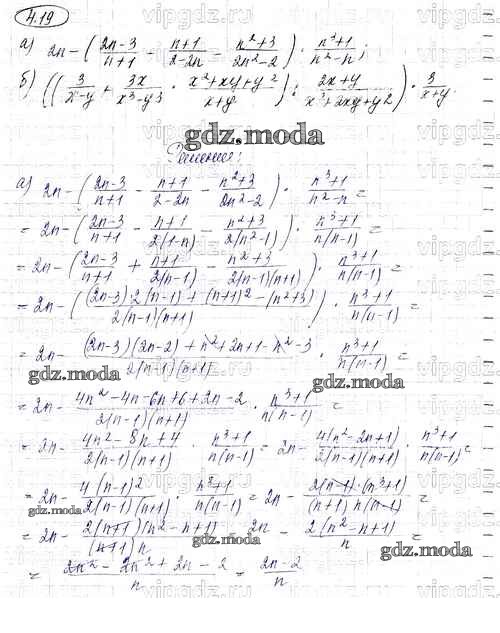 4.19
а) 2n-((2n-3)/(n+1) - (n+1)/(2-2n) - (n²+3)/(2n²-2)) · (n³+1)/(n²-n);
б) ((3/(x-y) + 3x/(x³-y3) · (x²+xy+y²)/(x+y)) : (2x+y)/(x²+2xy+y2)) · 3/(x+y).
gdz.moda
Решение:
а) 2n-((2n-3)/(n+1) - (n+1)/(2-2n) - (n²+3)/(2n²-2)) · (n³+1)/(n²-n) =
= 2n-((2n-3)/(n+1) - (n+1)/(2(1-n)) - (n²+3)/(2(n²-1))) · (n³+1)/(n(n-1)) =
= 2n-((2n-3)/(n+1) + (n+1)/(2(n-1)) - (n²+3)/(2(n-1)(n+1))) · (n³+1)/(n(n-1)) =
= 2n-((2n-3)·2(n-1)+(n+1)²-(n²+3))/(2(n-1)(n+1)) · (n³+1)/(n(n-1)) =
gdz.moda
= 2n- ((2n-3)(2n-2)+n²+2n+1-n²-3)/(2(n-1)(n+1)) · (n³+1)/(n(n-1)) =
gdz.moda
= 2n- (4n²-4n-6n+6+2n-2)/(2(n-1)(n+1)) · (n³+1)/(n(n-1)) =
gdz.moda
= 2n- (4n²-8n+4)/(2(n-1)(n+1)) · (n³+1)/(n(n-1)) = 2n- (4(n²-2n+1))/(2(n-1)(n+1)) · (n³+1)/(n(n-1)) =
= 2n- (4(n-1)²)/(2(n-1)(n+1)) · (n³+1)/(n(n-1)) = 2n- (2(n-1)·(n³+1))/((n+1)n(n-1)) =
gdz.moda
= 2n- (2(n+1)(n²-n+1))/((n+1)n) = 2n - (2(n²-n+1))/n =
gdz.moda
gdz.moda
= (2n²-2n²+2n-2)/n = (2n-2)/n